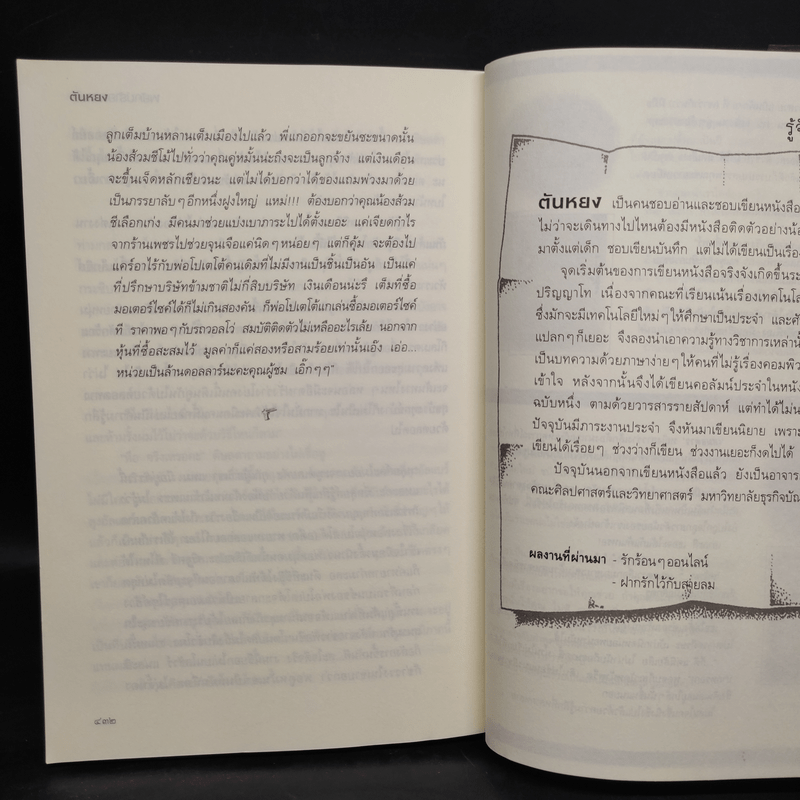 ตันหยง
ลูกเต็มบ้านหลานเต็มเมืองไปแล้ว พี่แกออกจะขยันซะขนาดนั้น
น้องส้วมซีโม้ไปทั่วว่าคุณคู่หมั้นน่ะถึงจะเป็นลูกจ้าง แต่เงินเดือน
จะขึ้นเจ็ดหลักเชียวนะ แต่ไม่ได้บอกว่าได้ของแถมพ่วงมาด้วย
เป็นภรรยาลับๆ อีกหนึ่งฝูงใหญ่ แหม่!!! ต้องบอกว่าคุณน้องส้วม
ซีเลือกเก่ง มีคนมาช่วยแบ่งเบาภาระไปได้ตั้งเยอะ แค่เจียดกำไร
จากร้านเพชรไปช่วยจุนเจือแค่นิดๆ หน่อยๆ แต่ก็คุ้ม จะต้องไป
แคร์อาไร้กับพ่อโปเตโต้คนเดิมที่ไม่มีงานเป็นชิ้นเป็นอัน เป็นแค่
ที่ปรึกษาบริษัทข้ามชาติไม่กี่สิบบริษัท เงินเดือนน่ะรึ เต็มที่ซื้อ
มอเตอร์ไซค์ได้ก็ไม่เกินสองคัน ก็พ่อโปเตโต้แกเล่นซื้อมอเตอร์ไซค์
ที ราคาพอๆ กับรถวอลโว่ สมบัติติดตัวไม่เหลืออะไรเล้ย นอกจาก
หุ้นที่ซื้อสะสมไว้ มูลค่าก็แค่สองหรือสามร้อยเท่านั้นเอ๊ง เอ่อ...
หน่วยเป็นล้านดอลลาร์นะคะคุณผู้ชม เอิ๊กๆๆ"
๔๓๒
ตันหยง เป็นคนชอบอ่านและชอบเขียนหนังสือ
ไม่ว่าจะเดินทางไปไหนต้องมีหนังสือติดตัวอย่างน้อ
มาตั้งแต่เด็ก ชอบเขียนบันทึก แต่ไม่ได้เขียนเป็นเรื่อง
จุดเริ่มต้นของการเขียนหนังสือจริงจังเกิดขึ้นระ
ปริญญาโท เนื่องจากคณะที่เรียนเน้นเรื่องเทคโนโล
ซึ่งมักจะมีเทคโนโลยีใหม่ๆ ให้ศึกษาเป็นประจำ และศั
แปลกๆ ก็เยอะ จึงลองนำเอาความรู้ทางวิชาการเหล่านั้
เป็นบทความด้วยภาษาง่ายๆ ให้คนที่ไม่รู้เรื่องคอมพิว
เข้าใจ หลังจากนั้นจึงได้เขียนคอลัมน์ประจำในหนัง
ฉบับหนึ่ง ตามด้วยวารสารรายสัปดาห์ แต่ทำได้ไม่น
ปัจจุบันมีภาระงานประจำ จึงหันมาเขียนนิยาย เพราะ
เขียนได้เรื่อยๆ ช่วงว่างก็เขียน ช่วงงานเยอะก็งดไปได้
ปัจจุบันนอกจากเขียนหนังสือแล้ว ยังเป็นอาจาร
คณะศิลปศาสตร์และวิทยาศาสตร์ มหาวิทยาลัยธุรกิจบัณ
ผลงานที่ผ่านมา - รักร้อนๆ ออนไลน์
- ฝากรักไว้กับสายลม